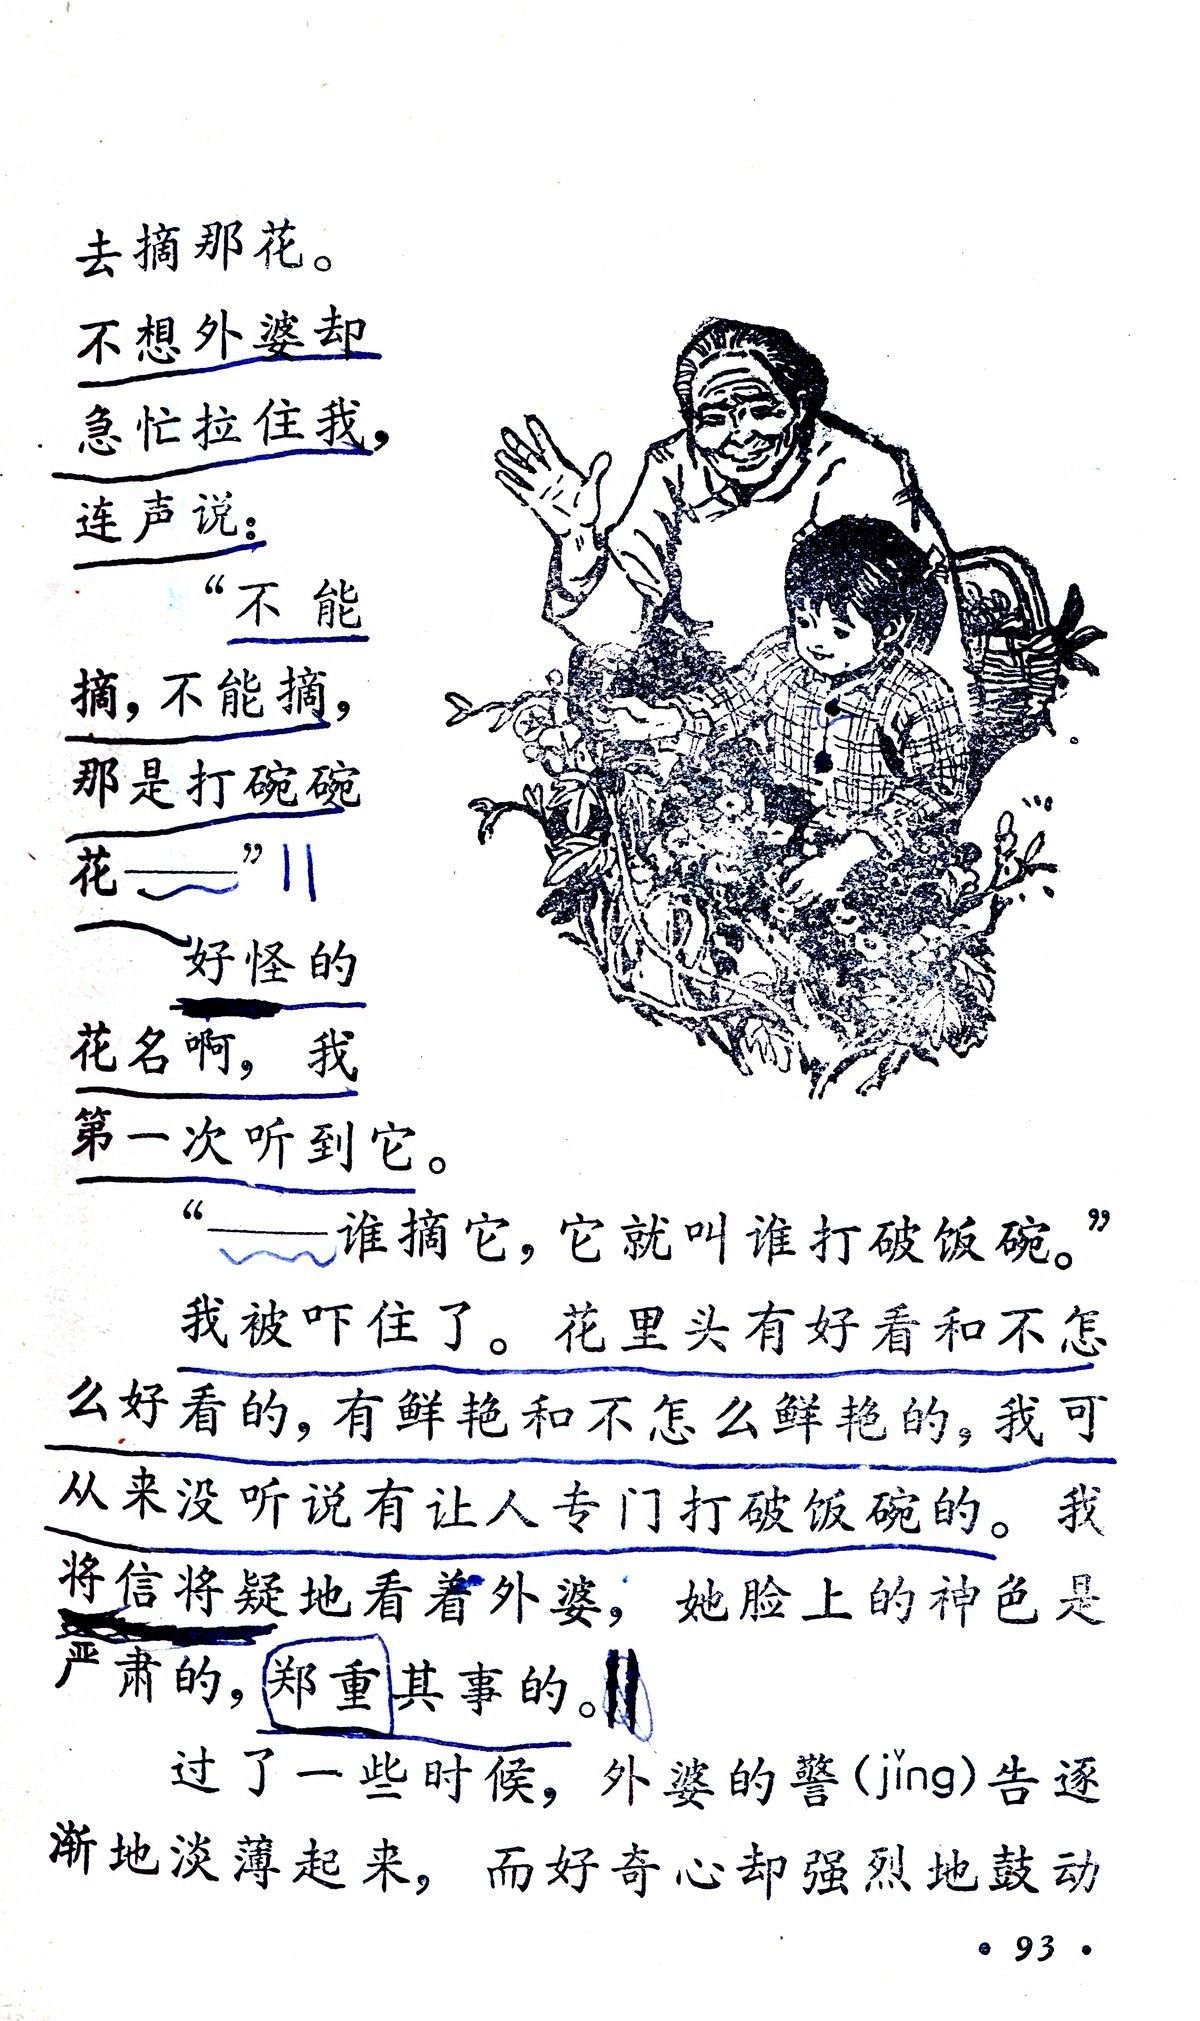 去摘那花。
不想外婆却
急忙拉住我，
连声说：
“不能
摘，不能摘，
那是打碗碗
花——”
好怪的
花名啊，我
第一次听到它。
“——谁摘它，它就叫谁打破饭碗。”
我被吓住了。花里头有好看和不怎
么好看的，有鲜艳和不怎么鲜艳的，我可
从来没听说有让人专门打破饭碗的。我
将信将疑地看着外婆，她脸上的神色是
严肃的，郑重其事的。
过了一些时候，外婆的警（jǐng）告逐
渐地淡薄起来，而好奇心却强烈地鼓动
• 93 •